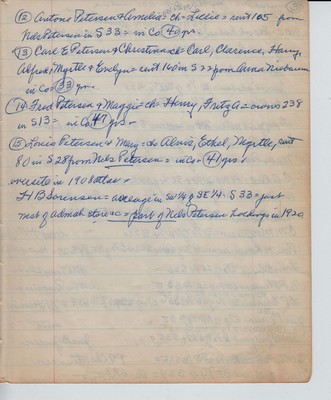 (12) Antone Petersen & Amelia = ch = Lucie = rent 165 from
Nels Petersen in S 33 = in Co 40 yrs.
(13) Carl E Petersen & Christina = ch = Carl, Clarence, Harry,
Alfred, Myrtle & Evelyn = rent 160 in S 22 from Anna
in Co 33 yrs.
(14) Fred Petersen & Maggie = ch = Henry, Fritz A = owns 238
in S 13 = in Co 47 yrs.
(15) Louis Petersen & Mary = ch Alvie, Ethel, Myrtle, rent
80 in S 28 from Nels Petersen = in Co = 41 yrs.
in 1908 atlas.
H B Sorensen = acreage in SW 1/4 of SE 1/4. S 33 = just
west of Admah store = part of Nels Petersen holdings in 1920.